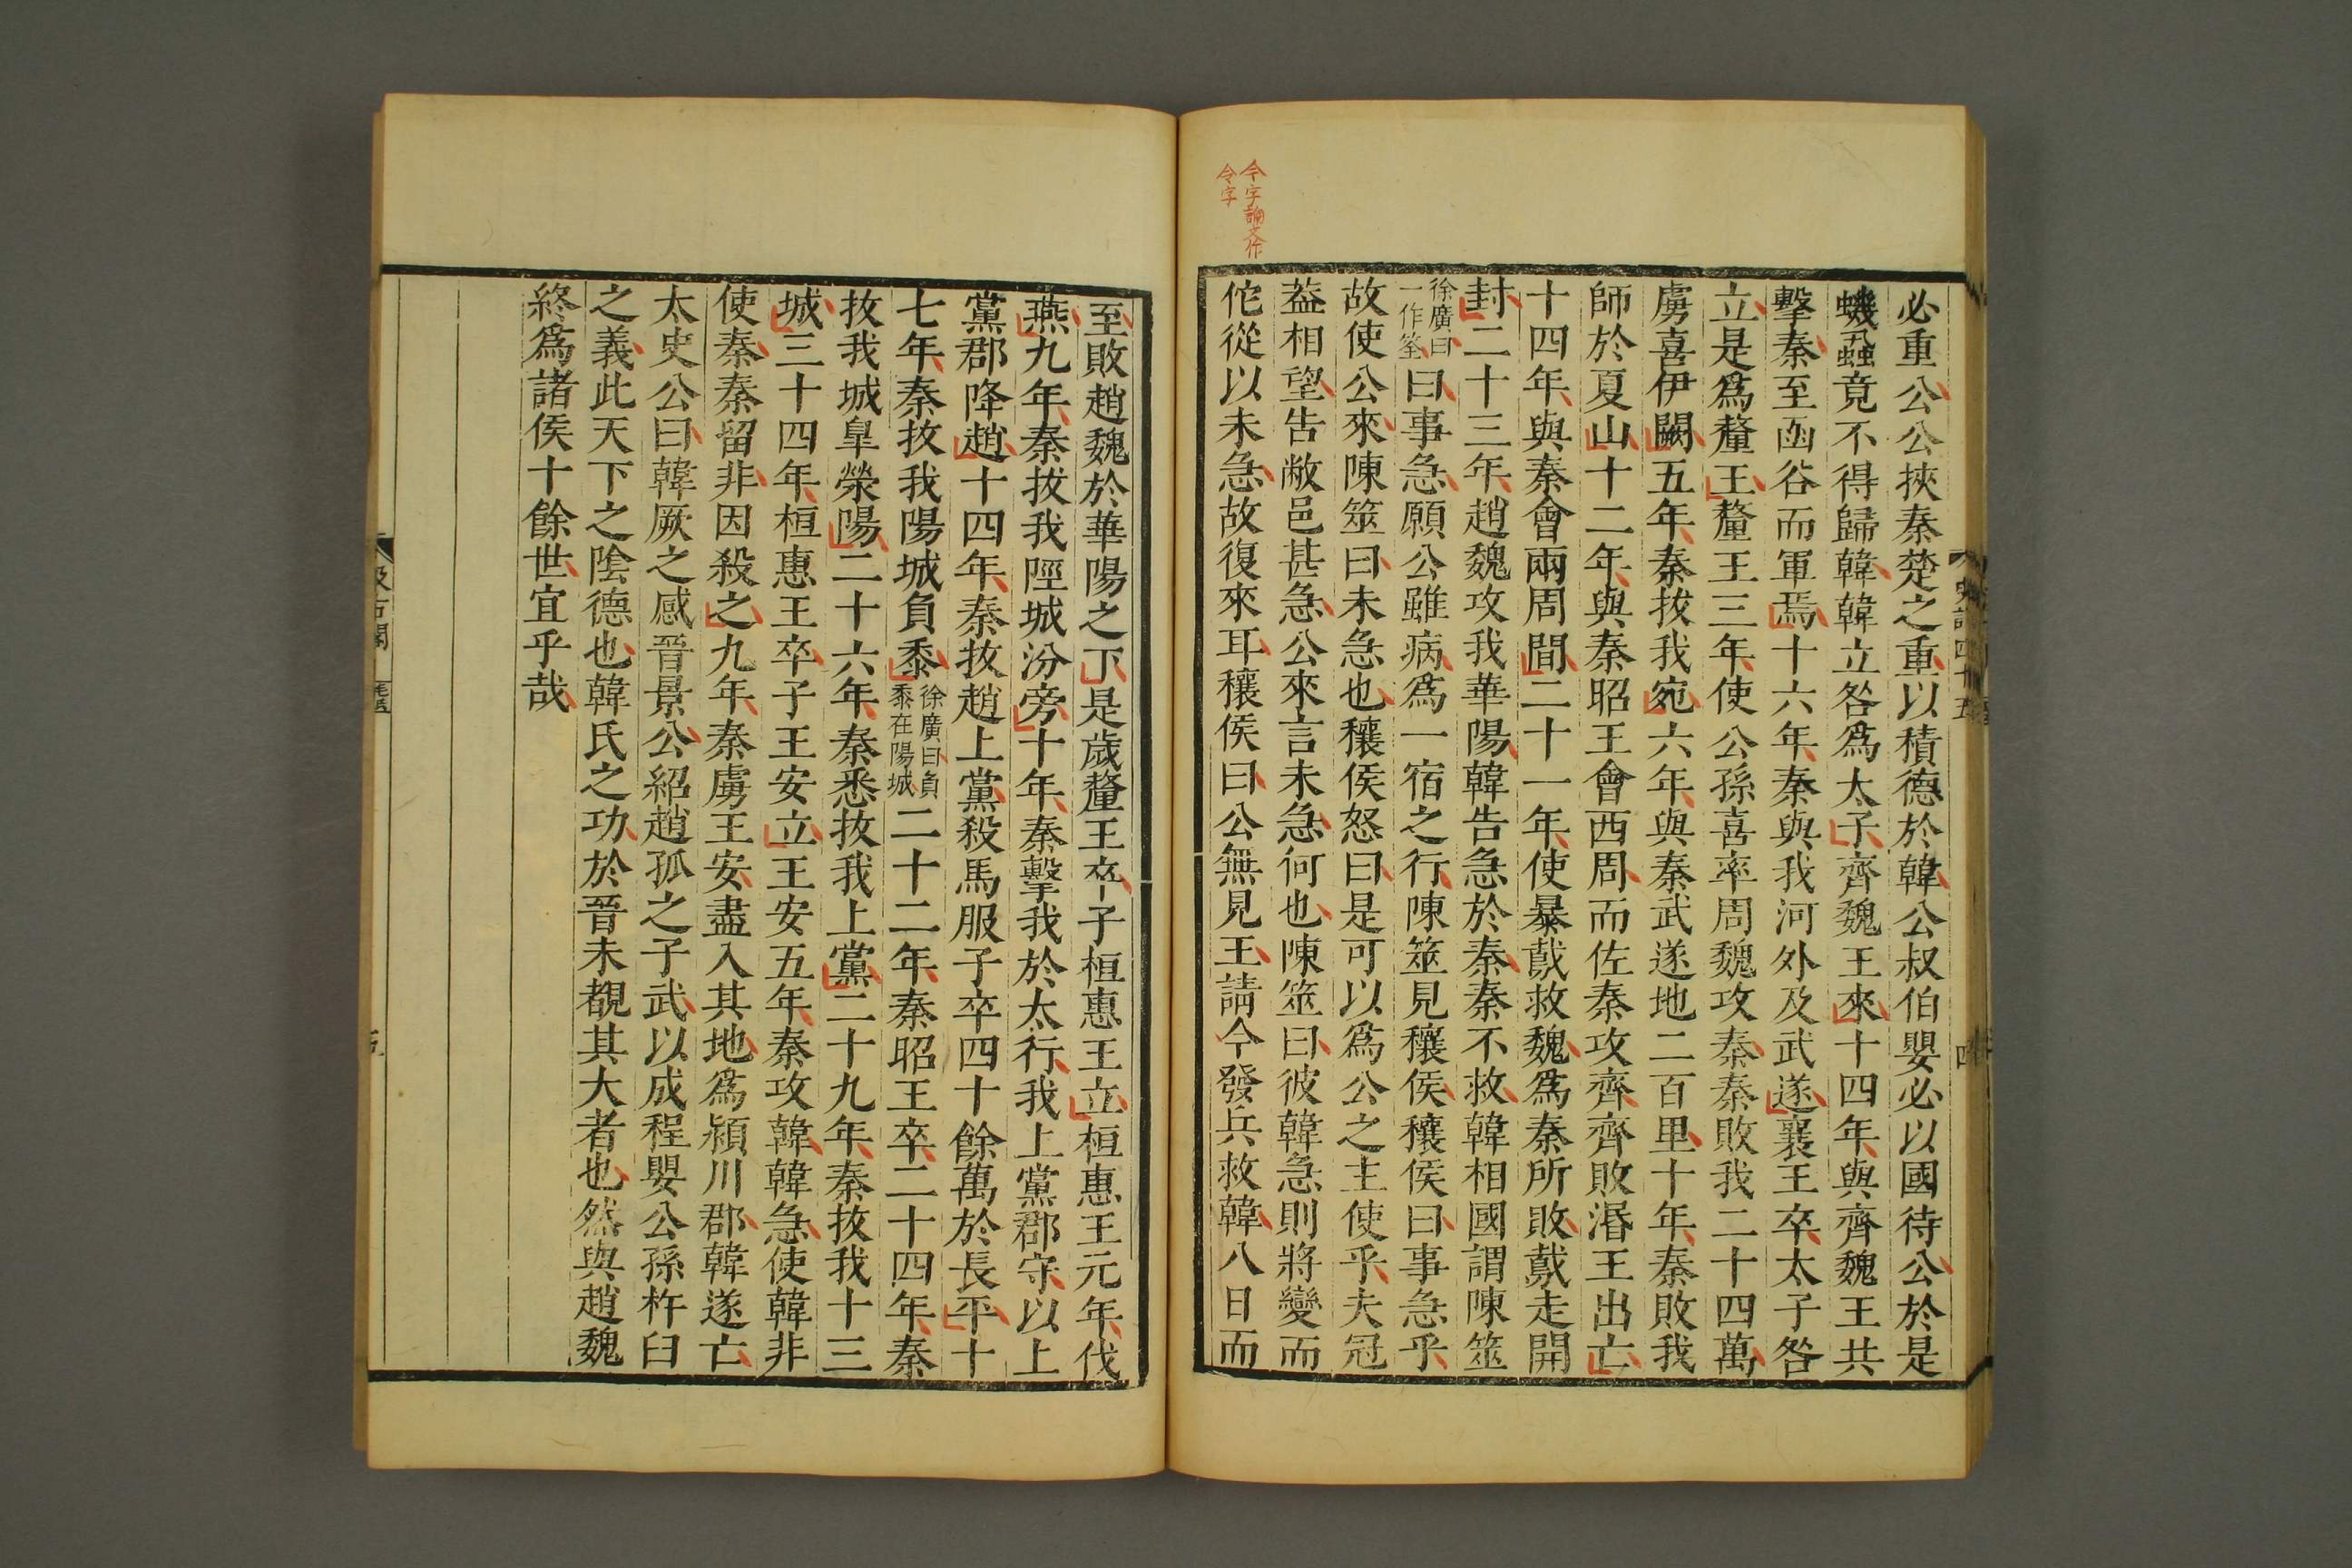 今字論文作
令字
必重公公挾秦楚之重以積德於韓公叔伯嬰必以國待公於是
蟣蝨竟不得歸韓韓立咎爲太子齊魏王來十四年與齊魏王共
擊秦至函谷而軍焉十六年秦與我河外及武遂襄王卒太子咎
立是爲釐王釐王三年使公孫喜率周魏攻秦秦敗我二十四萬
虜喜伊闕五年秦拔我宛六年與秦武遂地二百里十年秦敗我
師於夏山十二年與秦昭王會西周而佐秦攻齊齊敗湣王出亡
十四年與秦會兩周間二十一年使暴䳒救魏爲秦所敗䳒走開
封二十三年趙魏攻我華陽韓告急於秦秦不救韓相國謂陳筮
徐廣曰
一作筌
曰事急願公雖病爲一宿之行陳筮見穰侯穰侯曰事急乎
故使公來陳筮曰未急也穰侯怒曰是可以爲公之主使乎夫冠
葢相望告敝邑甚急公來言未急何也陳筮曰彼韓急則將變而
佗從以未急故復來耳穰侯曰公無見王請今發兵救韓八日而
史記四十五
四
至敗趙魏於華陽之下是歲釐王卒子桓惠王立桓惠王元年伐
燕九年秦拔我陘城汾旁十年秦擊我於太行我上黨郡守以上
黨郡降趙十四年秦拔趙上黨殺馬服子卒四十餘萬於長平十
七年秦拔我陽城負黍
徐廣曰負
黍在陽城
二十二年秦昭王卒二十四年秦
拔我城皐滎陽二十六年秦悉拔我上黨二十九年秦拔我十三
城三十四年桓惠王卒子王安立王安五年秦攻韓韓急使韓非
使秦秦留非因殺之九年秦虜王安盡入其地爲潁川郡韓遂亡
太史公曰韓厥之感晉景公紹趙孤之子武以成程嬰公孫杵臼
之義此天下之陰德也韓氏之功於晉未覩其大者也然與趙魏
終爲諸侯十餘世宜乎哉
汲古閣